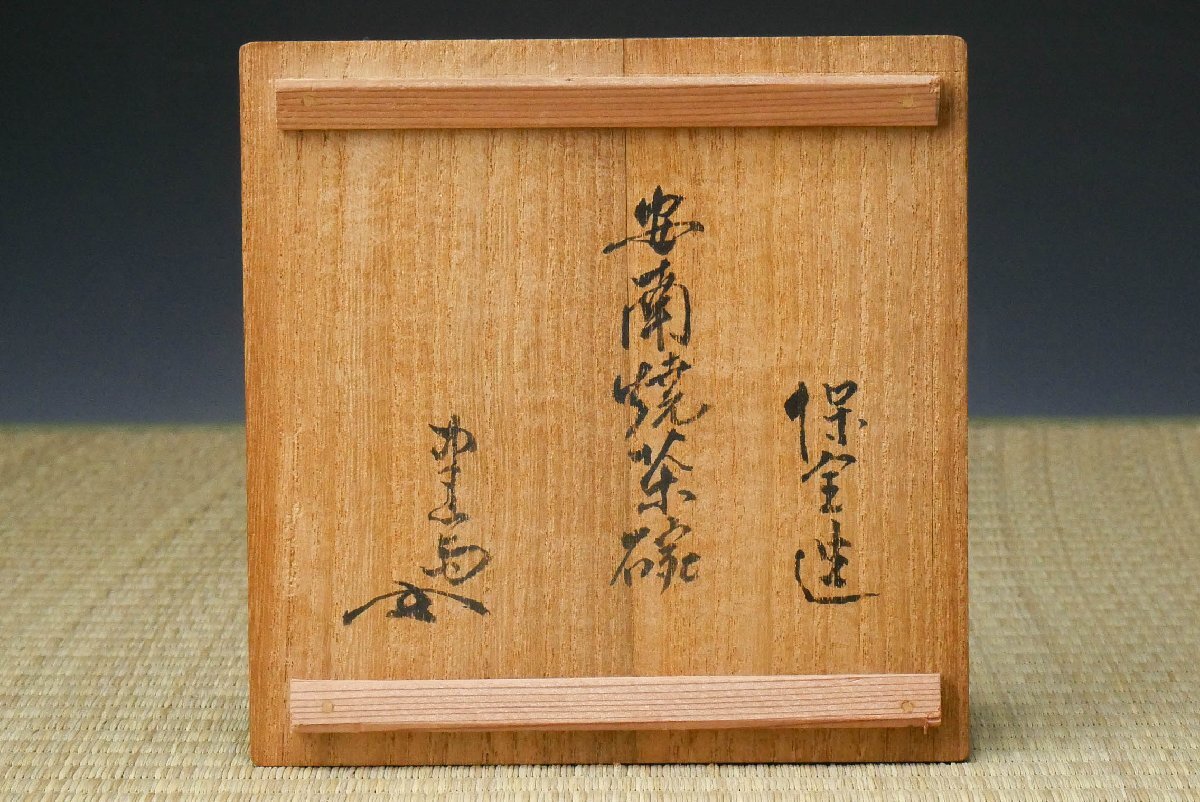 保全造
安南焼茶碗